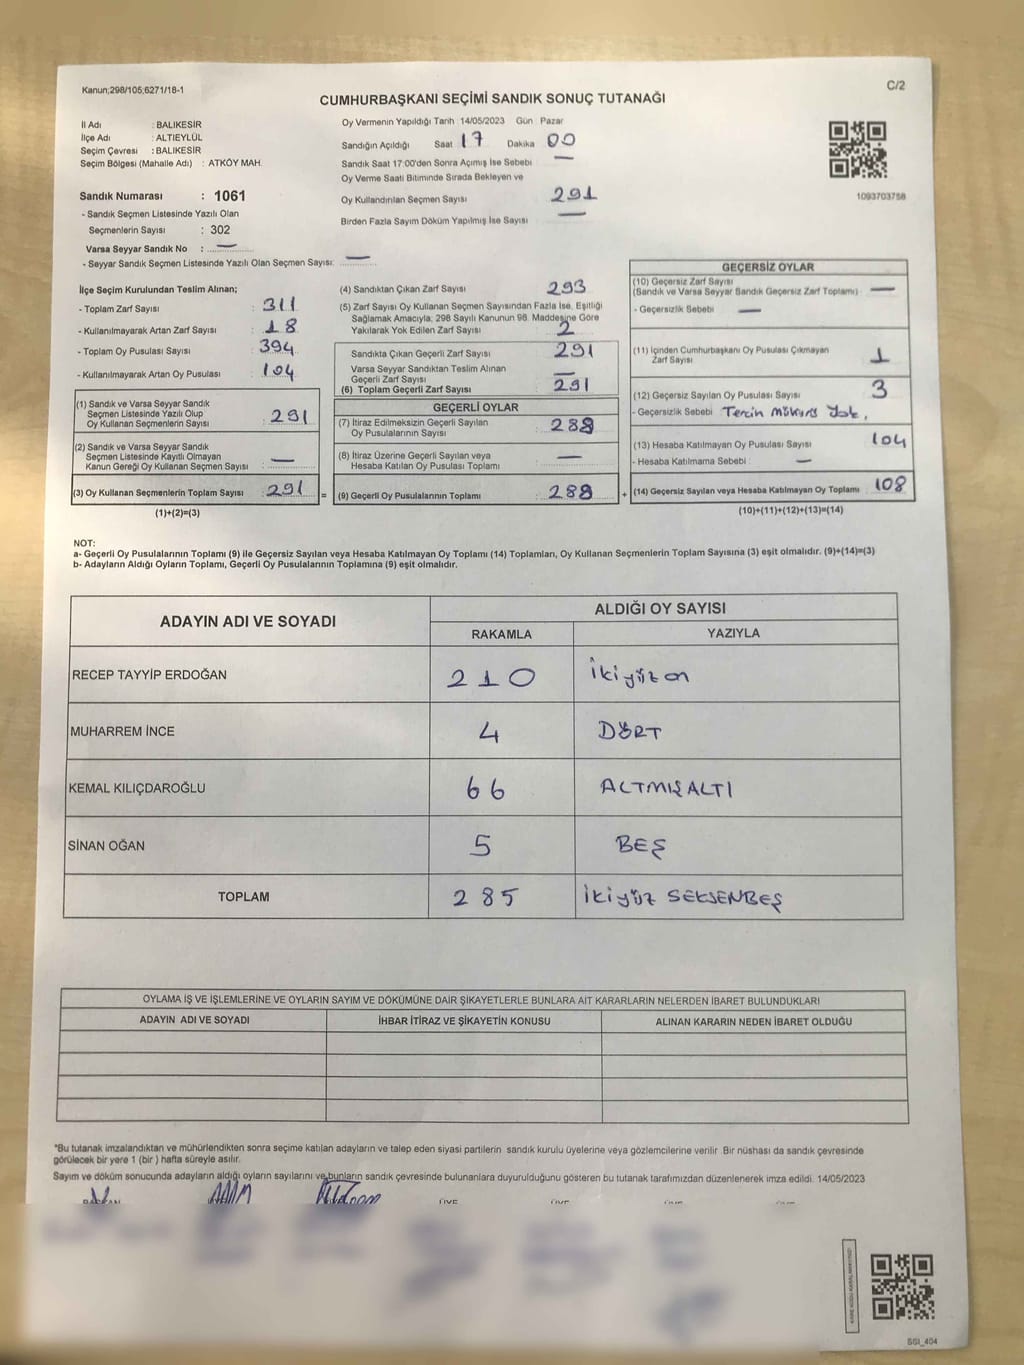 Kanun;298/105;6271/18-1
C/2
CUMHURBAŞKANI SEÇİMİ SANDIK SONUÇ TUTANAĞI
İl Adı : BALIKESİR
İlçe Adı : ALTIEYLÜL
Seçim Çevresi : BALIKESİR
Seçim Bölgesi (Mahalle Adı) : ATKÖY MAH.
Sandık Numarası : 1061
- Sandık Seçmen Listesinde Yazılı Olan
Seçmenlerin Sayısı : 302
Varsa Seyyar Sandık No : —
- Seyyar Sandık Seçmen Listesinde Yazılı Olan Seçmen Sayısı: —
Oy Vermenin Yapıldığı Tarih 14/05/2023 Gün Pazar
Sandığın Açıldığı Saat 17 Dakika 00
Sandık Saat 17:00'den Sonra Açımış İse Sebebi —
Oy Verme Saati Bitiminde Sırada Bekleyen ve
Oy Kullandırılan Seçmen Sayısı 291
Birden Fazla Sayım Döküm Yapılmış İse Sayısı —
1093703758
İlçe Seçim Kurulundan Teslim Alınan;
- Toplam Zarf Sayısı : 311
- Kullanılmayarak Artan Zarf Sayısı : 18
- Toplam Oy Pusulası Sayısı : 394
- Kullanılmayarak Artan Oy Pusulası : 104
(1) Sandık ve Varsa Seyyar Sandık
Seçmen Listesinde Yazılı Olup
Oy Kullanan Seçmenlerin Sayısı : 291
(2) Sandık ve Varsa Seyyar Sandık
Seçmen Listesinde Kayıtlı Olmayan
Kanun Gereği Oy Kullanan Seçmen Sayısı : —
(3) Oy Kullanan Seçmenlerin Toplam Sayısı : 291 =
(1)+(2)=(3)
(4) Sandıktan Çıkan Zarf Sayısı : 293
(5) Zarf Sayısı Oy Kullanan Seçmen Sayısından Fazla İse, Eşitliği
Sağlamak Amacıyla; 298 Sayılı Kanunun 98. Maddesine Göre
Yakılarak Yok Edilen Zarf Sayısı : 2
Sandıkta Çıkan Geçerli Zarf Sayısı : 291
Varsa Seyyar Sandıktan Teslim Alınan
Geçerli Zarf Sayısı : —
(6) Toplam Geçerli Zarf Sayısı : 291
GEÇERLİ OYLAR
(7) İtiraz Edilmeksizin Geçerli Sayılan
Oy Pusulalarının Sayısı : 288
(8) İtiraz Üzerine Geçerli Sayılan veya
Hesaba Katılan Oy Pusulası Toplamı : —
(9) Geçerli Oy Pusulalarının Toplamı : 288 +
GEÇERSİZ OYLAR
(10) Geçersiz Zarf Sayısı
(Sandık ve Varsa Seyyar Sandık Geçersiz Zarf Toplamı) —
- Geçersizlik Sebebi —
(11) İçinden Cumhurbaşkanı Oy Pusulası Çıkmayan
Zarf Sayısı 1
(12) Geçersiz Sayılan Oy Pusulası Sayısı 3
- Geçersizlik Sebebi Tercih Mührü Yok.
(13) Hesaba Katılmayan Oy Pusulası Sayısı 104
- Hesaba Katılmama Sebebi : —
(14) Geçersiz Sayılan veya Hesaba Katılmayan Oy Toplamı 108
(10)+(11)+(12)+(13)=(14)
NOT:
a- Geçerli Oy Pusulalarının Toplamı (9) ile Geçersiz Sayılan veya Hesaba Katılmayan Oy Toplamı (14) Toplamları, Oy Kullanan Seçmenlerin Toplam Sayısına (3) eşit olmalıdır. (9)+(14)=(3)
b- Adayların Aldığı Oyların Toplamı, Geçerli Oy Pusulalarının Toplamına (9) eşit olmalıdır.
ADAYIN ADI VE SOYADI
ALDIĞI OY SAYISI
RAKAMLA YAZIYLA
RECEP TAYYİP ERDOĞAN 210 İkiyüz on
MUHARREM İNCE 4 DÖRT
KEMAL KILIÇDAROĞLU 66 ALTMIŞALTI
SİNAN OĞAN 5 BEŞ
TOPLAM 285 İkiyüz SEKSENBEŞ
OYLAMA İŞ VE İŞLEMLERİNE VE OYLARIN SAYIM VE DÖKÜMÜNE DAİR ŞİKAYETLERLE BUNLARA AİT KARARLARIN NELERDEN İBARET BULUNDUKLARI
ADAYIN ADI VE SOYADI İHBAR İTİRAZ VE ŞİKAYETİN KONUSU ALINAN KARARIN NEDEN İBARET OLDUĞU
*Bu tutanak imzalandıktan ve mühürlendikten sonra seçime katılan adayların ve talep eden siyasi partilerin sandık kurulu üyelerine veya gözlemcilerine verilir. Bir nüshası da sandık çevresinde
görülecek bir yere 1 (bir) hafta süreyle asılır.
Sayım ve döküm sonucunda adayların aldığı oyların sayılarını ve bunların sandık çevresinde bulunanlara duyurulduğunu gösteren bu tutanak tarafımızdan düzenlenerek imza edildi. 14/05/2023
SSI_404